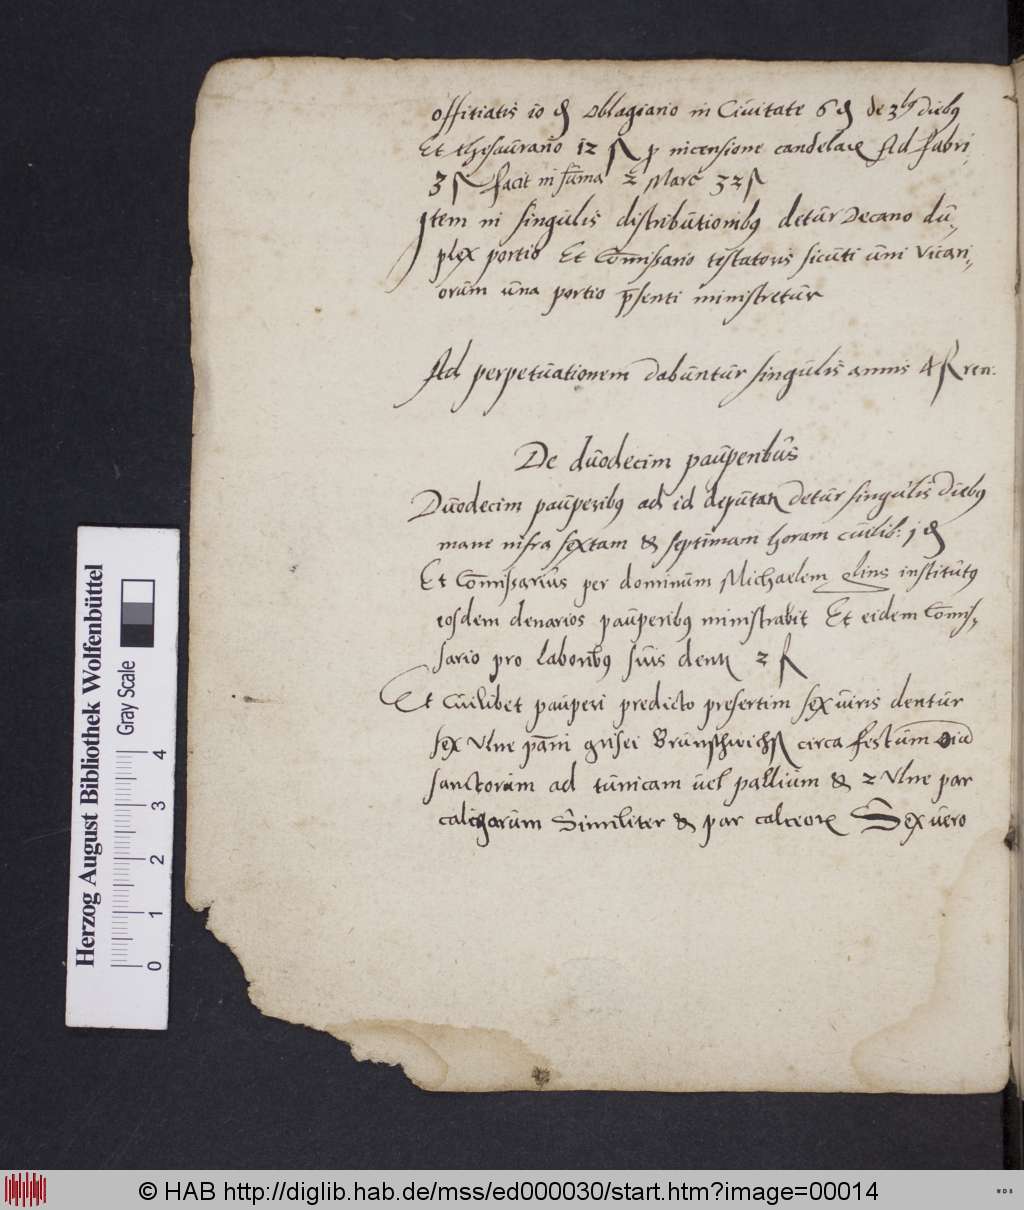 offitiatis 10 ₰ Oblagiario in Ciuitate 6 ₰ de 3bꝰ diebꝰ
Et thesaurario 12 ß ꝓ incensione candelaꝝ Ad fabri
3 ß facit in sūma 2 Marc 32 ß
Item in singulis distributionibꝰ detur Decano du-
plex portio Et Comissario testatoris sicuti uni Vicari-
orum una portio p̄senti ministretur
Ad perpetuationem dabuntur singulis annis 4 fl ren.
De duodecim pauperibus
Duodecim pauꝑibꝰ ad id deputatꝭ detur singulis diebꝰ
mane infra sextam & septimam horam cuilib: 1 ₰
Et Comissarius per dominum Michaelem elins institutꝰ
eosdem denarios pauperibꝰ ministrabit Et eidem Comis-
sario pro laboribꝰ suis dentꝛ 2 fl
Et Cuilibet pauperi predicto presertim sex uiris dentur
sex Vlne pāni grisei Brunschwichs circa festum Oīū
sanctorum ad tunicam uel pallium & 2 Vlne par
caligarum Similiter & par calceoꝝ Sex uero
Herzog August Bibliothek Wolfenbüttel
Gray Scale
0 1 2 3 4
© HAB http://diglib.hab.de/mss/ed000030/start.htm?image=00014